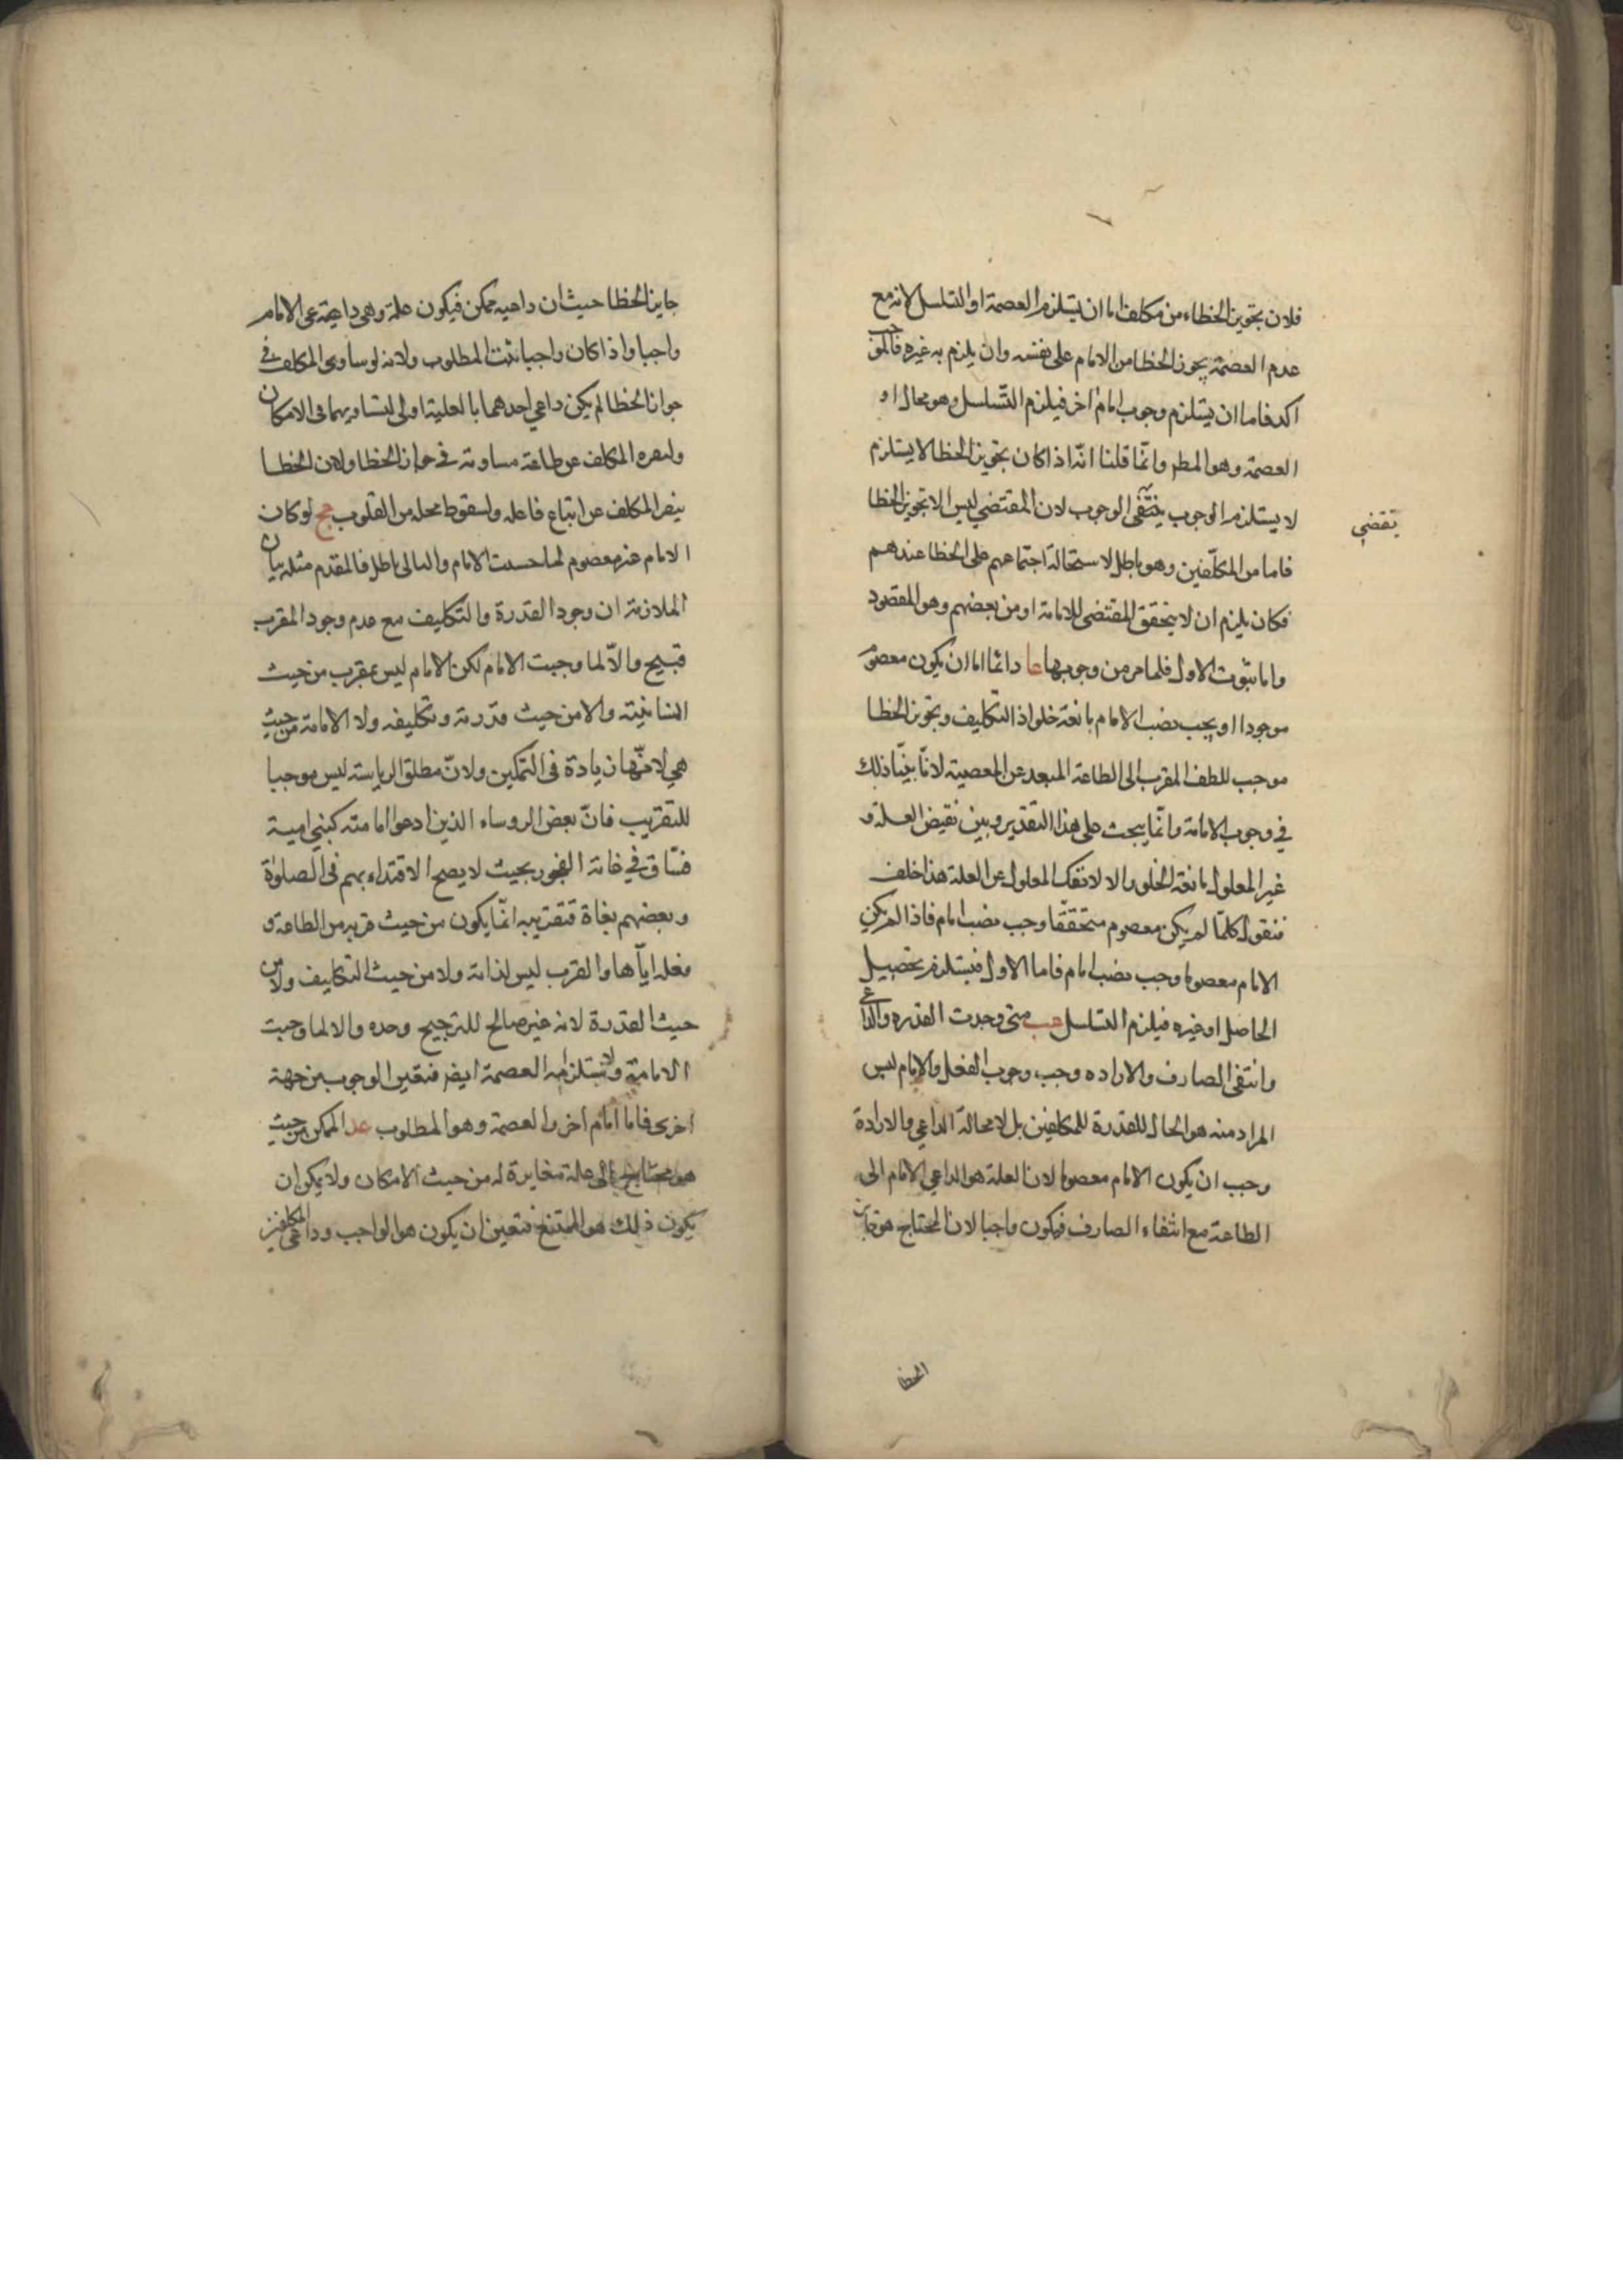 فلان تجويز الخطاء من مكلف اما ان يستلزم العصمة او التسلسل لانه مع
عدم العصمة يجوز الخطا من الامام على نفسه وان يلزم به غيره فالموجب
اكد فاما ان يستلزم وجوب امام اخر فيلزم التسلسل وهو محال او
العصمة وهو المطر وانما قلنا انه اذا كان تجويز الخطا لا يستلزم
لا يستلزم الوجوب ينتفى الوجوب لان المقتضي ليس الا تجويز الخطا
يقضي
فاما من المكلفين وهو باطل لاستحالة اجتماعهم على الخطا عندهم
فكان يلزم ان لا يتحقق المقتضى للامامة او من بعضهم وهو المقصود
واما ثبوت الاول فلما مر من وجوبها عا دائما اما ان يكون معصوم
موجودا او يجب نصب الامام مانعة خلو اذ التكليف وتجويز الخطا
موجب للطف المقرب الى الطاعة المبعد عن المعصية لانا بينا ذلك
في وجوب الامامة وانما يبحث على هذا التقدير وبين نقيض العلة و
غير المعلول مانعة الخلو والا لانفك المعلول عن العلة هذا خلف
فنقول كلما لم يكن معصوم متحققا وجب نصب امام فاذا لم يكن
الامام معصوما وجب نصب امام فاما الاول فيستلزم تحصيل
الحاصل او غيره فيلزم التسلسل عب متى وجدت القدره والداعي
وانتفى الصارف والاراده وجب وجوب الفعل والامام ليس
المراد منه هو الحال للقدرة للمكلفين بل لا محالة الداعي والارادة
وجب ان يكون الامام معصوما لان العلة هو الداعي الامام الى
الطاعة مع انتفاء الصارف فيكون واجبا لان المحتاج هو
الخطا
جايز الخطا حيث ان داعيه ممكن فيكون علة وهي داعية عى الامام
واجبا واذا كان واجبا ثبت المطلوب ولانه لو ساوى المكلف في
جواز الخطا لم يكن داعي احدهما بالعلية اولى لتساويهما في الامكان
المكلف عن طاعة مساوته في جواز الخطا ولان الخطا
ينفر المكلف عن اتباع فاعله ولسقوط محله من القلوب عج لو كان
الامام غير معصوم لما حسنت الامام والتالى باطل فالمقدم مثله بيان
الملازمة ان وجود القدرة والتكليف مع عدم وجود المقرب
قبيح والا لما وجبت الامام لكن الامام ليس بمقرب من حيث
انسانيته والا من حيث قدرته وتكليفه ولا الامامة من حيث
هي لانها زيادة فى التمكين ولان مطلق الرياسة ليس موجبا
للتقريب فان بعض الروساء الذين ادعوا امامته كبني امية
فساق في غاية الفجور بحيث لا يصح الاقتداء بهم فى الصلوة
وبعضهم بغاة فتقريبه انما يكون من حيث قربه من الطاعة و
فعله اياها والقرب ليس لذاته ولا من حيث التكليف ولا من
حيث القدرة لانه غير صالح للترجيح وحده والا لما وجبت
الامامة ولاستلزامه العصمة ايضر فتعين الوجوب من جهة
اخرى فاما امام اخر او العصمة وهو المطلوب عد الممكن من حيث
هو محتاج الى علة مغايرة له من حيث الامكان ولا يمكن ان
يكون ذلك هو الممتنع فتعين ان يكون هو الواجب وداعي المكلفين